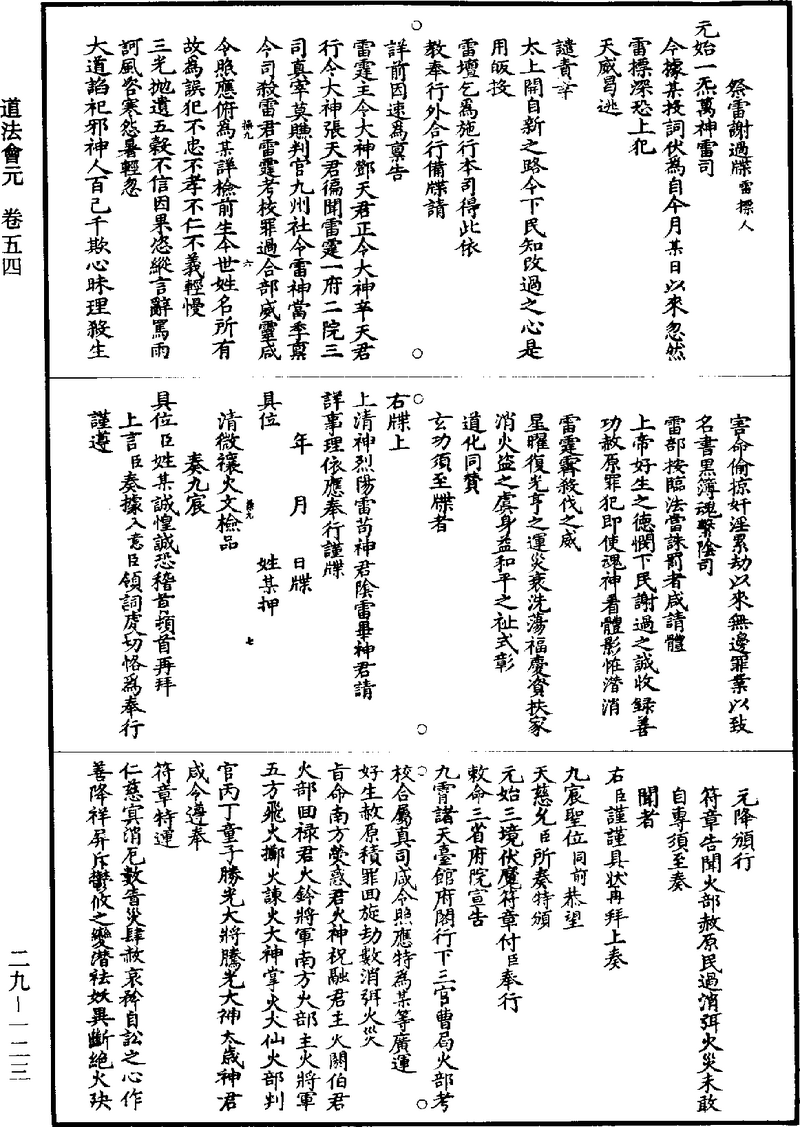 祭雷謝過牒雷摽人
元始一炁萬神雷司
今據某投詞伏爲自今月某日以來忽然
雷摽深恐上犯
天威曷逃
譴責辛
太上開自新之路令下民知改過之心是
用皈投
雷壇乞爲施行本司得此依
教奉行外合行備牒請
詳前因速爲稟告
雷霆主令大神鄧天君正令大神辛天君
行令大神張天君徧聞雷霆一府二院三
司真宰莫賺判官九州社令雷神當季稟
令司殺雷君雷霆考校罪過合部威靈咸
令照應俯爲某詳檢前生今世姓名所有
故爲誤犯不忠不孝不仁不義輕慢
三光拋遺五穀不信因果恣縱言辭罵雨
訶風咎寒怨暑輕忽
大道諂祀邪神人百己千欺心昧理殺生
害命偷掠奸淫累劫以來無邊罪業以致
名書黑簿魂繫陰司
雷部按臨法當誅罰者咸請體
上帝好生之德憫下民謝過之誠收録善
功赦原罪犯即使魂神着體影怪潛消
雷霆霽殺伐之威
星曜復光亨之運災衰洗蕩福慶資扶家
消火盜之虞身益和平之祉式彰
道化同贊
玄功須至牒者
右牒上
上清神烈陽雷苟神君陰雷畢神君請
詳事理依應奉行謹牒
年 月 日牒
具位 姓某押
清微禳火文檢品
奏九宸
具位臣姓某誠惶誠恐稽首頓首再拜
上言臣奏據入意臣領詞虔切恪爲奉行
謹遵
元降頒行
符章告聞火部赦原民過消弭火災未敢
自專須至奏
聞者
右臣謹謹具狀再拜上奏
九宸聖位同前恭望
天慈允臣所奏特頒
元始三境伏魔符章付臣奉行
敕命三省府院宣告
九霄諸天臺館府閣行下三官曹局火部考
校合屬真司咸令照應特爲某等廣運
好生赦原積罪回旋劫數消弭火災
旨命南方熒惑君火神祝融君主火閼伯君
火部回禄君火鈴將軍南方火部主火將軍
五方飛火擲火諫火大神掌火大仙火部判
官丙丁童子勝光大將騰光大神太歲神君
咸令遵奉
符章特運
仁慈冥消厄數眚災肆赦哀矜自訟之心作
善降祥屏斥鬱攸之變潛袪妖異斷絕火殃
道法會元 卷五四
二九-一二三
操九
六
操九
七